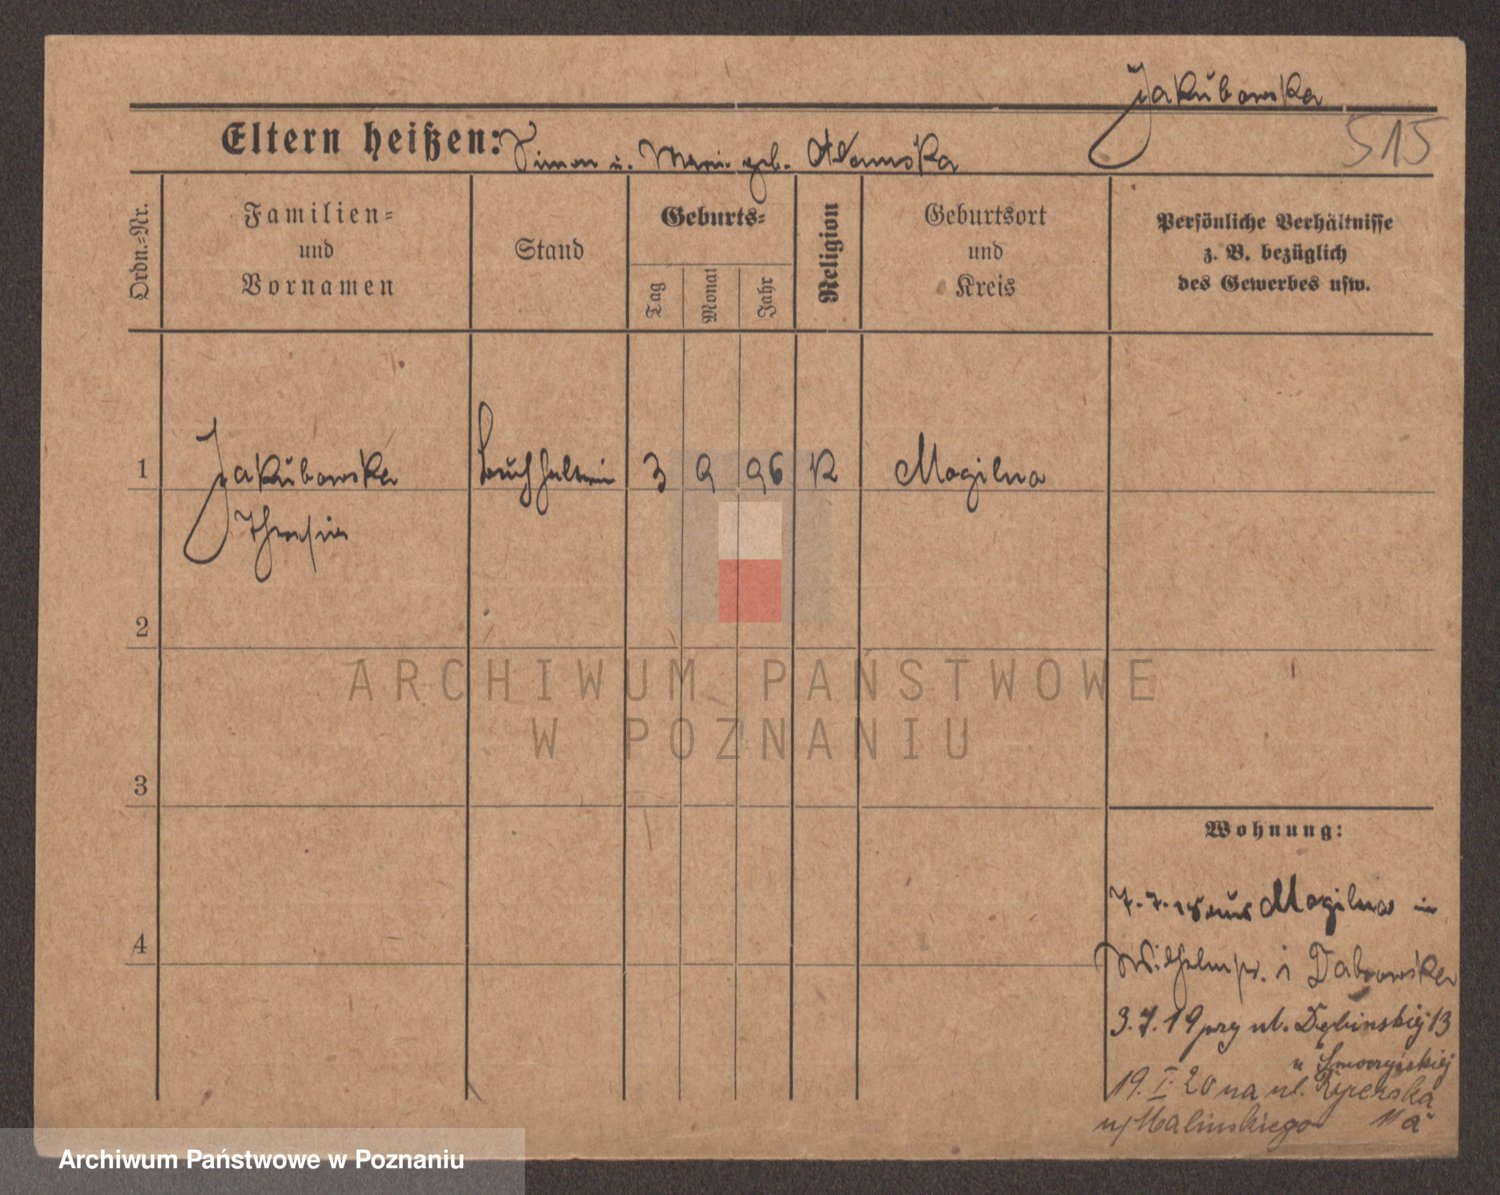 Jakubowska
515
Eltern heißen: Simon u. Marie geb.
Ordn.-Nr.
Familien-
und
Vornamen
Stand
Geburts-
Tag
Monat
Jahr
Religion
Geburtsort
und
Kreis
Persönliche Verhältnisse
z. B. bezüglich
des Gewerbes usw.
1 Jakubowska Buchhalterin 3 9 96 K Mogilno
2
ARCHIWUM PAŃSTWOWE
W POZNANIU
3
Wohnung:
7.7.18 aus Mogilno in
4
Wilhelmstr. Dabrowska
3.7.19 przy ul. Dębińskiej 13
u Smoczyńskiej
19. I. 20 na ul.
u Malinskiego 11a
Archiwum Państwowe w Poznaniu